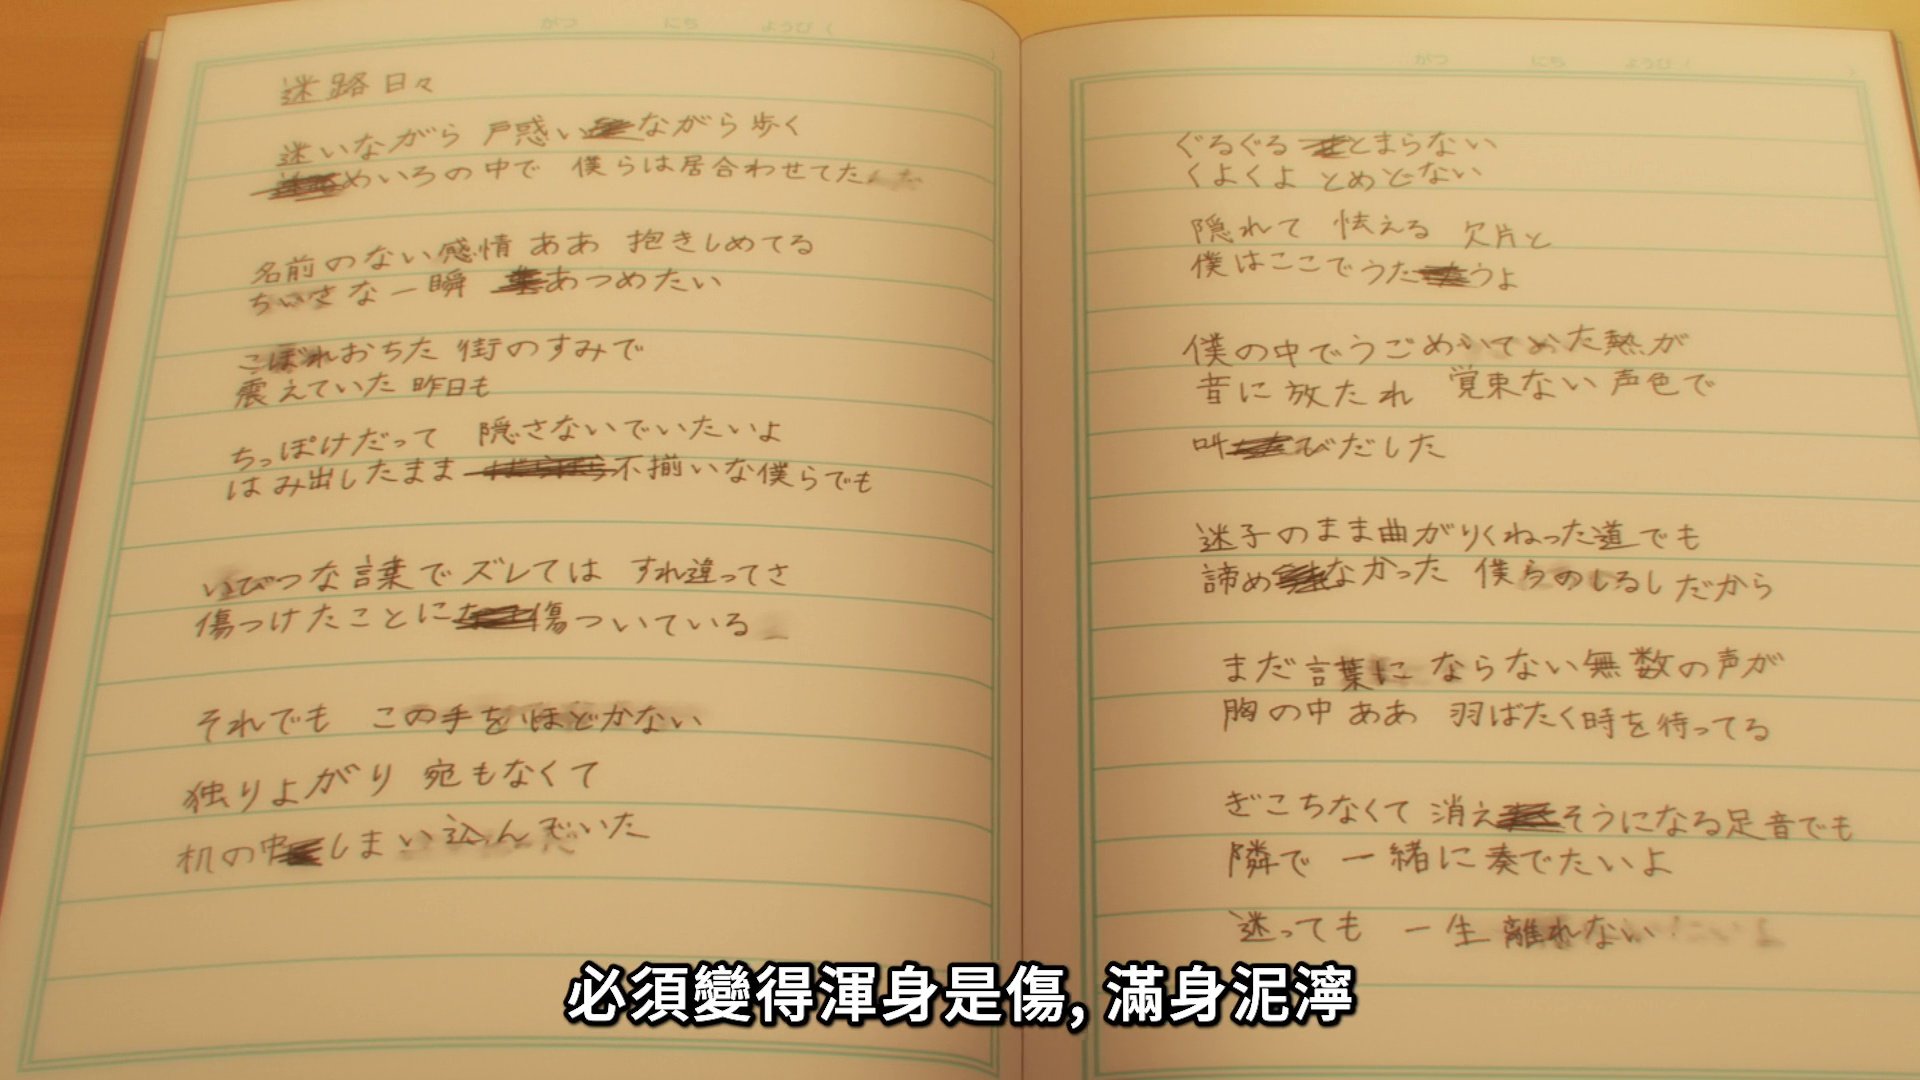 がつ にち ようび (
迷路日々
迷いながら 戸惑いながら歩く
めいろの中で 僕らは居合わせてた
名前のない感情 ああ 抱きしめてる
ちいさな一瞬 あつめたい
こぼれおちた 街のすみで
震えていた 昨日も
ちっぽけだって 隠さないでいたいよ
はみ出したまま 不揃いな僕らでも
いびつな言葉で ズレては すれ違ってさ
傷つけたことに傷ついている
それでも この手をほどかない
独りよがり 宛もなくて
机の中しまい込んでいた
がつ にち ようび (
ぐるぐる とまらない
くよくよ とめどない
隠れて 怯える 欠片と
僕はここでうたうよ
僕の中でうごめいてた熱が
音に 放たれ 覚束ない声色で
叫びだした
迷子のまま曲がりくねった道でも
諦めなかった 僕らのしるしだから
まだ言葉に ならない無数の声が
胸の中 ああ 羽ばたく時を待ってる
ぎこちなくて 消えそうになる足音でも
隣で 一緒に奏でたいよ
迷っても 一生 離れない
必須變得渾身是傷, 滿身泥濘